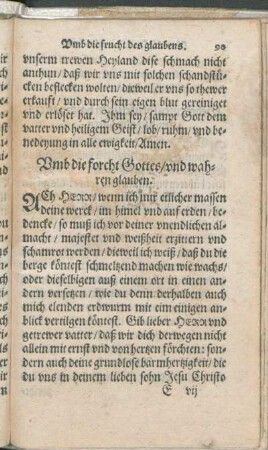 Vmb die frucht des glaubens. 90
vnserm trewen Heyland dise schmach nicht
anthun / daß wir vns mit solchen schandstü-
cken beflecken wolten / dieweil er vns so thewer
erkaufft / vnd durch sein eigen blut gereiniget
vnd erlöser hat. Ihm sey / sampt Gott dem
vatter vnd heiligem Geist / lob / ruhm / vnd be-
nedeyung in alle ewigkeit / Amen.
Vmb die forcht Gottes / vnd wah-
ren glauben.
ACh HERR / wenn ich mit etlicher massen
deine werck / im himel vnd auf erden / be-
dencke / so muß ich vor deiner vnendlichen al-
macht / majestet vnd weißheit erzittern vnd
schamrot werden / dieweil ich weiß / daß du die
berge köntest schmeltzend machen wie wachs /
oder dieselbigen auß einem ort in einen an-
dern versetzen / wie du denn derhalben auch
mich elenden erdwurm mit eim einigen an-
blick vertilgen köntest. Gib lieber HERR vnd
getrewer vatter / daß wir dich derwegen nicht
allein mit ernst vnd von hertzen förchten: son-
dern auch deine grundlose barmhertzigkeit / die
du vns in deinem lieben sohn Jesu Christo
E vij